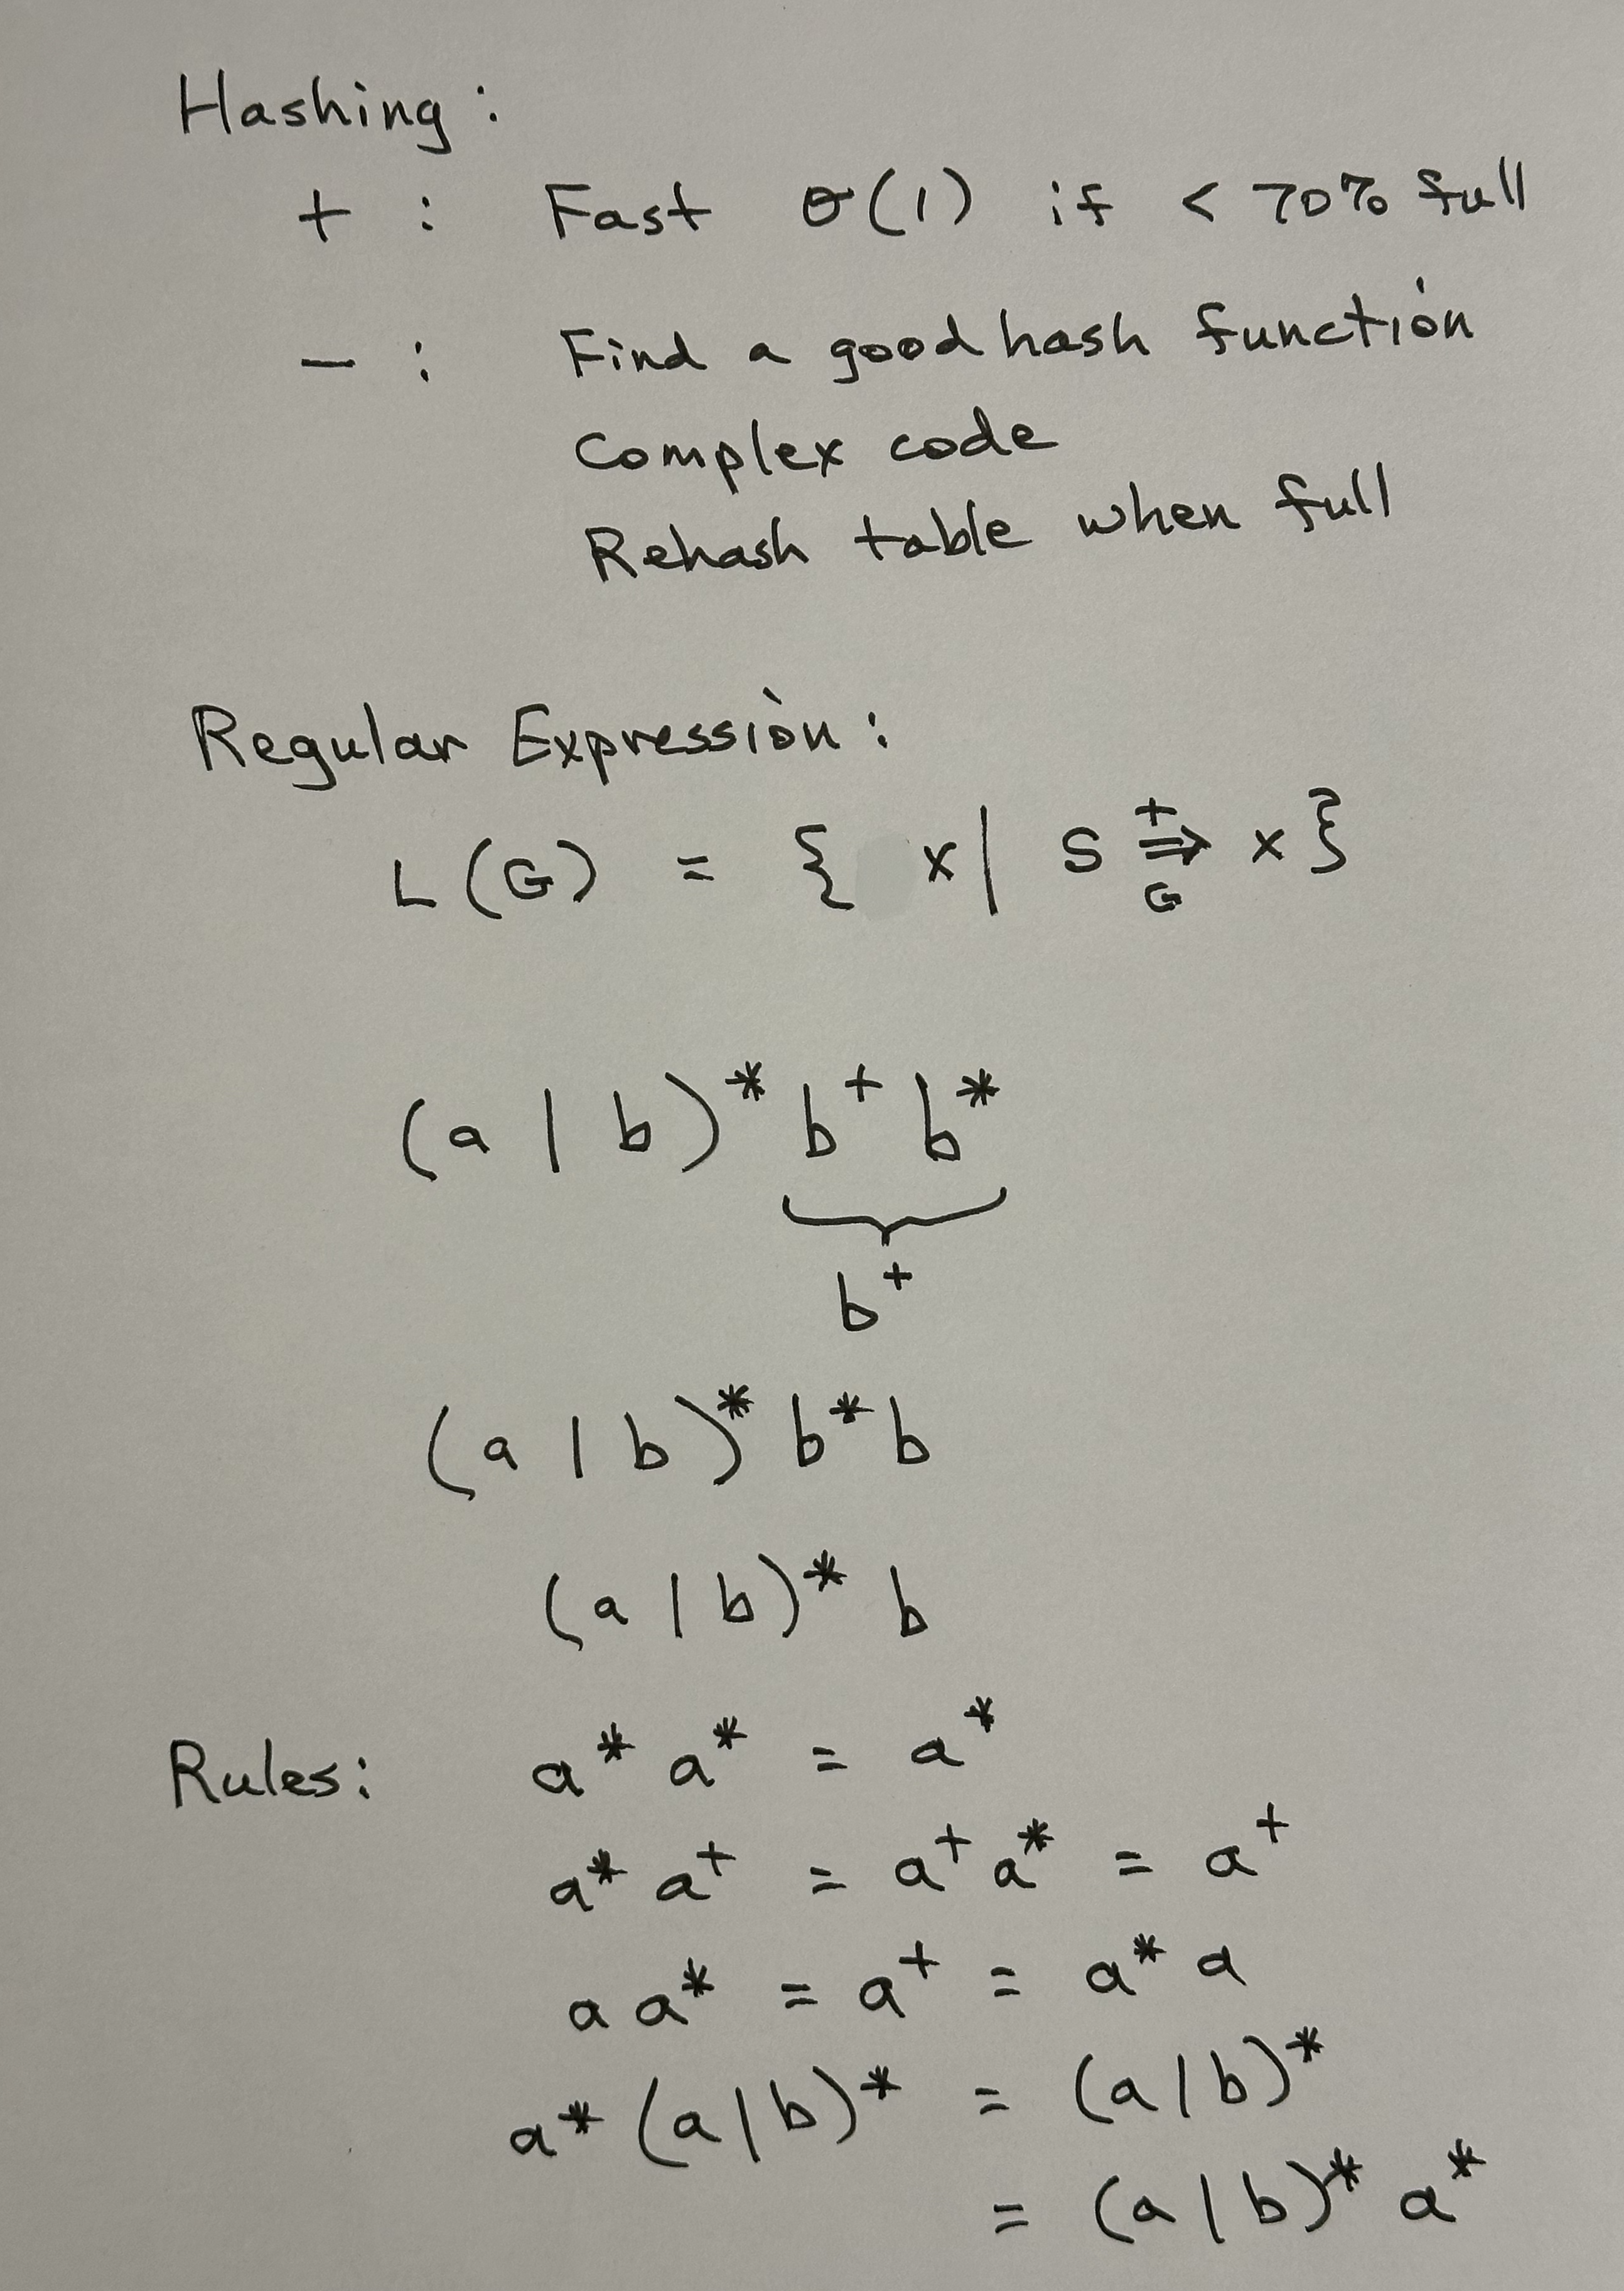 Hashing :
+ : Fast O(1) if < 70% full
- : Find a good hash function
Complex code
Rehash table when full
Regular Expression :
L(G) = { x | S ⇒ x }
+
G
(a | b)* b+ b*
b+
(a | b)* b* b
(a | b)* b
Rules: a* a* = a*
a* a+ = a+ a* = a+
a a* = a+ = a* a
a* (a | b)* = (a | b)*
= (a | b)* a*